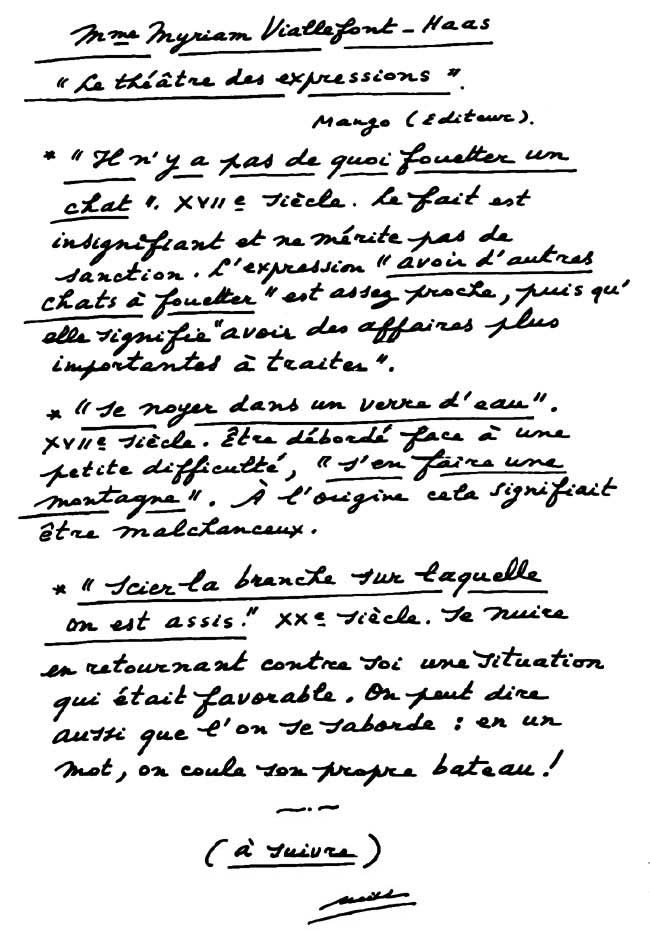 Mme Myriam Viallefont-Haas
"Le théâtre des expressions".
Mango (Editeur).
* "Il n'y a pas de quoi fouetter un
chat". XVIIe siècle. Le fait est
insignifiant et ne mérite pas de
sanction. L'expression "avoir d'autres
chats à fouetter" est assez proche, puis qu'
elle signifie "avoir des affaires plus
importantes à traiter".
* "Se noyer dans un verre d'eau".
XVIIe siècle. Être débordé face à une
petite difficulté, "s'en faire une
montagne". À l'origine cela signifiait
être malchanceux.
* "Scier la branche sur laquelle
on est assis." XXe siècle. Se nuire
en retournant contre soi une situation
qui était favorable. On peut dire
aussi que l'on se saborde : en un
mot, on coule son propre bateau !
(à suivre)